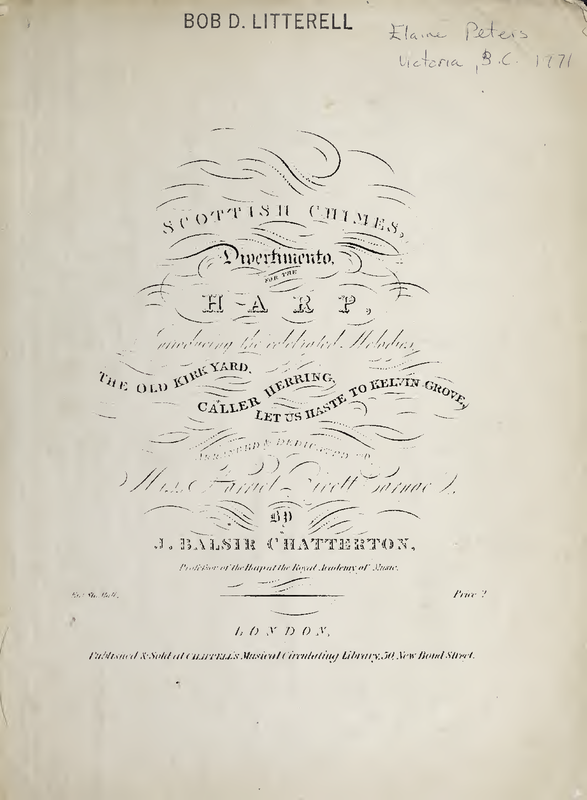 BOB D. LITTERELL
Elaine Peters
Victoria, B.C. 1971
SCOTTISH CHIMES,
Divertimento,
FOR THE
HARP,
Introducing the celebrated Melodies,
THE OLD KIRK YARD,
CALLER HERRING,
LET US HASTE TO KELVIN GROVE,
ARRANGED & DEDICATED TO
Miss Harriet
By
J. BALSIR CHATTERTON,
Professor of the Harp at the Royal Academy of Music.
Ent. Sta. Hall.
Price
LONDON,
Published & Sold at CHAPPELL'S Musical Circulating Library, 50, New Bond Street.